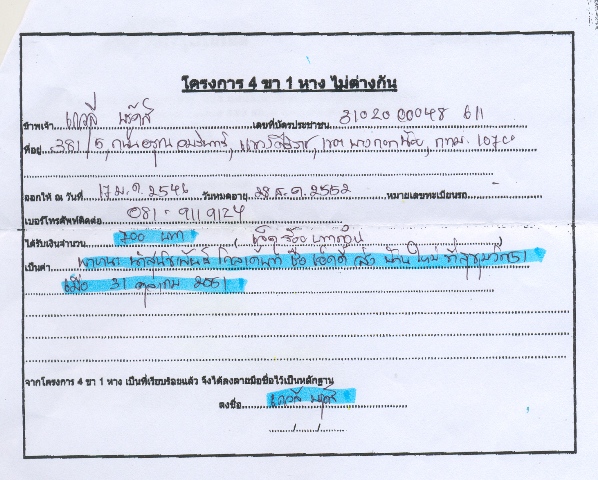 โครงการ 4 ขา 1 หาง ไม่ต่างกัน
ข้าพเจ้า เลขที่บัตรประชาชน 31020 00048 611
ที่อยู่ 381/5, ถนนอรุณอมรินทร์, แขวงศิริราช, เขต บางกอกน้อย, กทม. 10700
ออกให้ ณ วันที่ 17 ม.ค. 2546 วันหมดอายุ 28 ธ.ค. 2552 หมายเลขทะเบียนรถ
เบอร์โทรศัพท์ติดต่อ 081-9119124
ได้รับเงินจำนวน 700 บาท , เจ็ดร้อยบาทถ้วน
เป็นค่า พาหนะ ชื่อ ส่ง บ้านใหม่ ที่สุขุมวิท 51
เมื่อ 31 ตุลาคม 2551
จากโครงการ 4 ขา 1 หาง เป็นที่เรียบร้อยแล้ว จึงได้ลงลายมือชื่อไว้เป็นหลักฐาน
ลงชื่อ